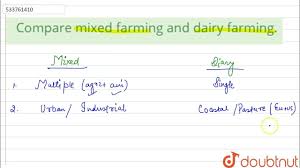 533761410
Compare mixed farming and dairy farming.
Mixed Diary
1. Multiple (agri+ ani) Single
2. Urban / Industrial Coastal / Pasture (Euros)
doubtnut